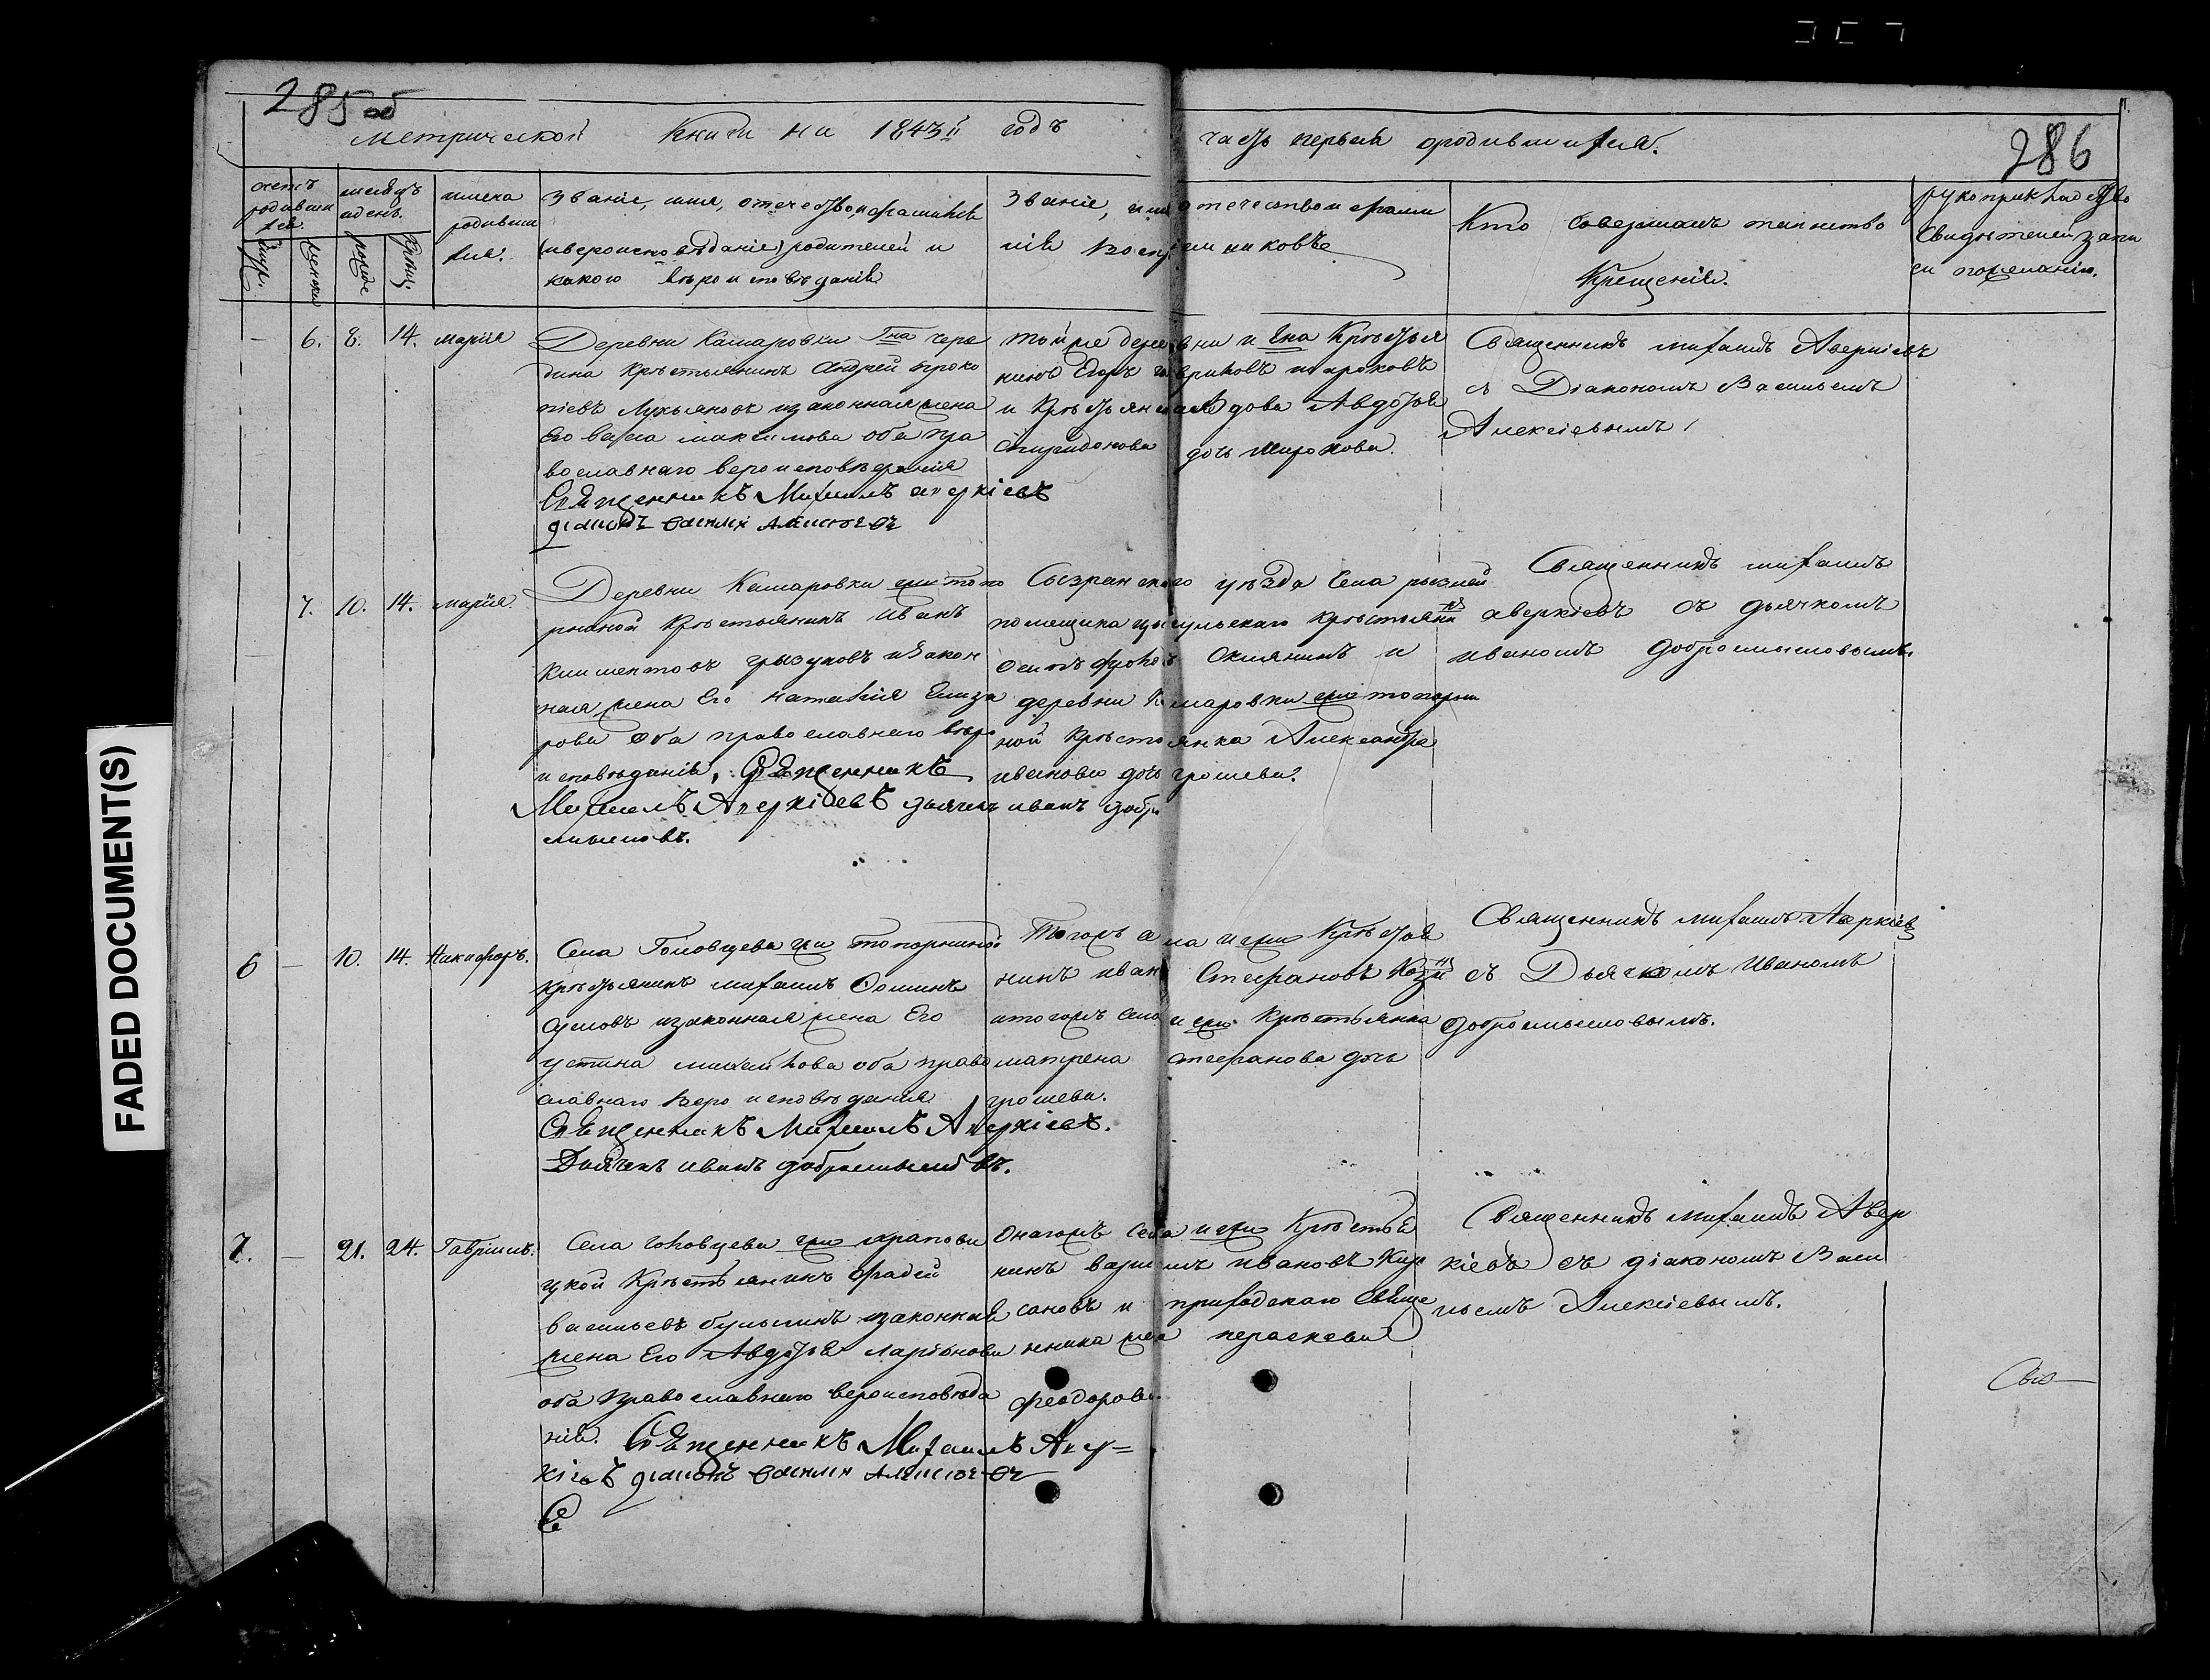 285 об
метрической книги на 1843й годъ
часть первая о родившихся.
286
счетъ родившихся.
муж.
женска
месяцъ и день.
рожде
крещ.
имена родивши
хся.
Званіе, имя, отечество, и фамилія
(и вероисповѣданіе) родителей и
какого вѣроисповѣданія
Званіе, имя отечество и фами
лія воспріемниковъ
Кто совершалъ таинство
Крещенія.
рукоприкладство
свидѣтелей запи
си по желанію.
— 6. 8. 14. Марія
Деревни Камаровки Гна чере
дина крѣстьянинъ Андрей проко
піевъ Лукьяновъ и законная жена
Его васса максимова оба пра
вославнаго вероисповѣданія
Священникъ Михаилъ Аверкіевъ
діаконъ Василій Алексіевъ
той же деревни и Ена Крѣстья
нинъ Егоръ
и Крѣстьянская вдова Авдотья
Спиридонова дочь Миронова.
Священникъ михаилъ Аверкіевъ
съ Діакономъ Васильемъ
Алексіевымъ
7. 10. 14. марія.
Деревни Камаровки гжи топо
рниной Крѣстьянинъ Иванъ
Климентовъ грызуновъ и закон
ная жена Его Наталія Елиза
рова Оба православнаго вѣро
исповѣданія, Священникъ
Михаилъ Аверкіевъ дьячекъ иванъ добро
мысловъ.
Сызранскаго уѣзда Села
помещика Крѣстьянинъ
Осипъ фроловъ и
деревни Камаровки гжи топорни
ной Крѣстьянка Александра
иванова дочь грошева.
Священникъ михаилъ
аверкіевъ съ дьячкомъ
иваномъ Добромысловымъ.
6 — 10. 14. Никифоръ.
Села Головцева гжи топорниной
крѣстьянинъ михаилъ Фоминъ
и законная жена Его
устина михайлова оба право
славнаго вероисповѣданія
Священникъ Михаилъ Аверкіевъ.
Дьячекъ иванъ добромысловъ.
Тогожъ села и гжи Крѣстья
нинъ иванъ Стефановъ
и тогожъ Села и гжи Крѣстьянка
матрена стефанова дочь
грошева.
Священникъ михаилъ Аверкіевъ
съ Дьячкомъ Иваномъ
Добромысловымъ.
7. — 21. 24. Гавриилъ.
Села головцева гжи
цкой Крѣстьянинъ Фадей
васильевъ и законная
жена Его Авдотья ларіонова
оба православнаго вероисповѣда
нія. Священникъ Михаилъ Авер=
кіевъ діаконъ Василій Алексіевъ
Онагожъ Села и гжи Крѣстья
нинъ ивановъ Кир
сановъ и приходскаго Свяще
нника жена пераскева
феодорова.
Священникъ михаилъ Авер
кіевъ съ діакономъ Васи
льемъ Алексіевымъ.
FADED DOCUMENT(S)